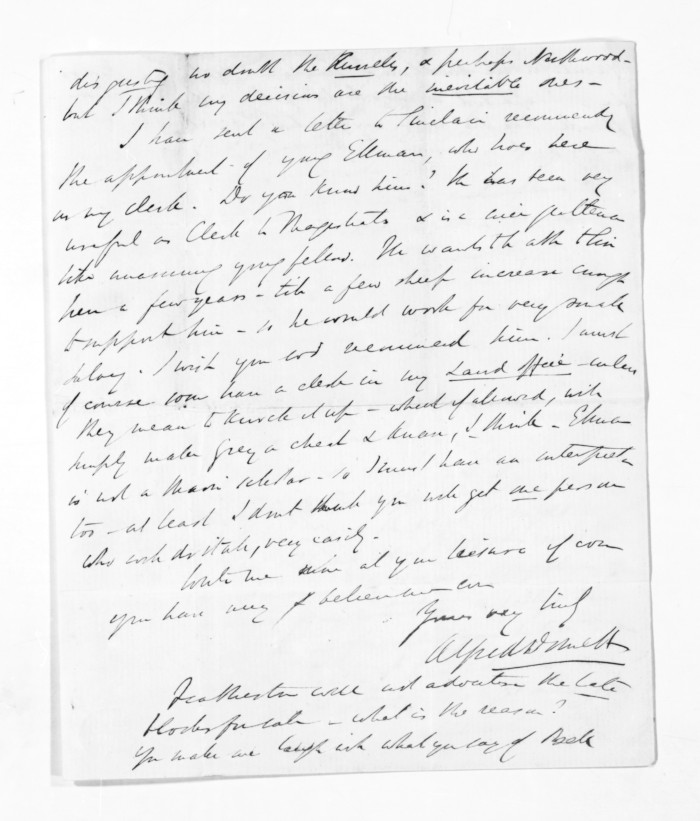 disgusting no doubt the Russells, & perhaps Northwood -
but I think my decisions are the inevitable ones -
I have sent a letter to Sinclair recommending
the appointment of young Ellman, who lives here
as my clerk. Do you know him? He has been very
useful as Clerk to Magistrate & is a nice gentleman
like unassuming young fellow. He wants to
here a few years - till a few sheep increase enough
to support him - so he would work for very small
salary. I wish you wd recommend him. I must
of course soon have a clerk in my Land office - unless
they mean to knock it up - which if allowed, will
simply make Grey a cheat & knave, I think - Ellman
is not a Maori scholar - so I must have an interpreter
too - at least I don't think you will get one person
who wd do it all, very easily.
Write me at your leisure if ever
you have any & believe me ever
Yours very truly
Alfred Domett
Featherston will not advertise the late
blocks for sale - what is the reason?
You make me laugh with what you say of